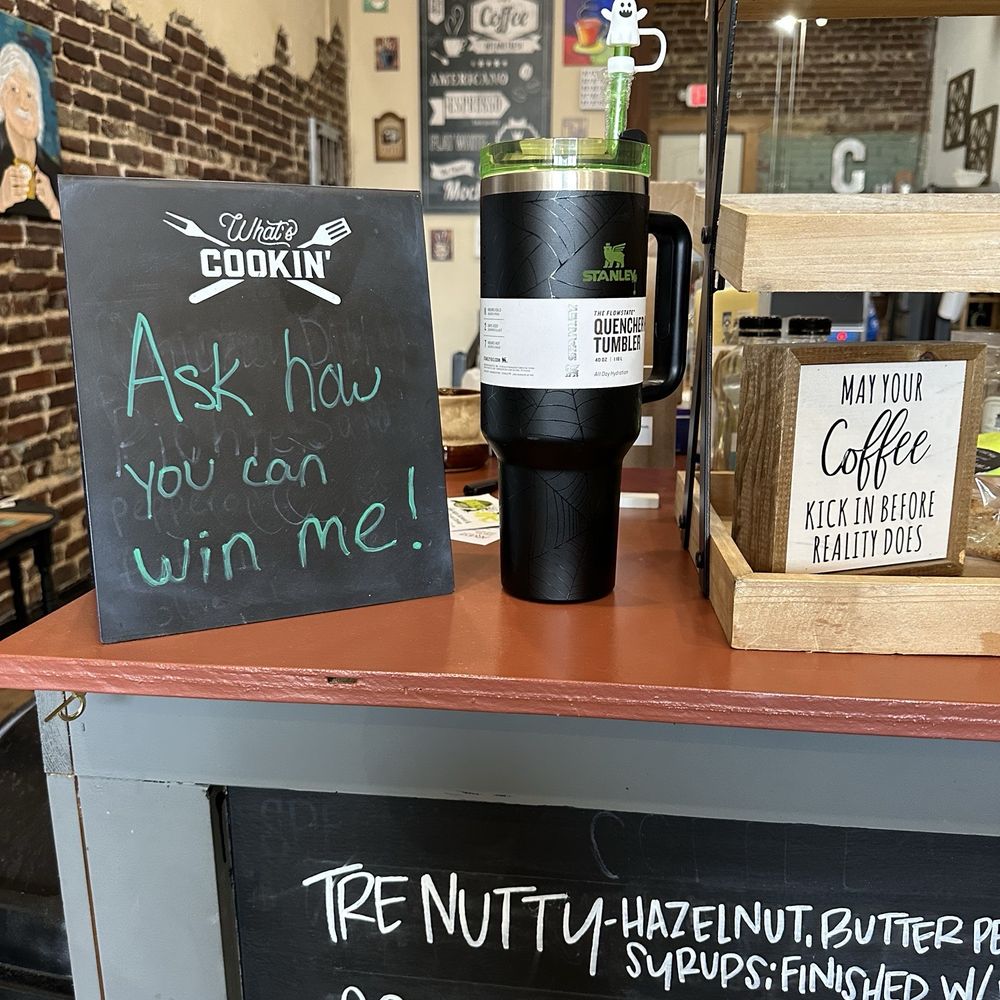 What's
COOKIN'
Ask how
you can
win me!
Coffee
AMERICANO
ESPRESSO
FLAT WHITE
Mocha
STANLEY
THE FLOWSTATE
QUENCHER
TUMBLER
40 OZ | 1.18 L
All Day Hydration
STANLEY
C
MAY YOUR
Coffee
KICK IN BEFORE
REALITY DOES
TRE NUTTY-HAZELNUT, BUTTER PE
SYRUPS; FINISHED W/